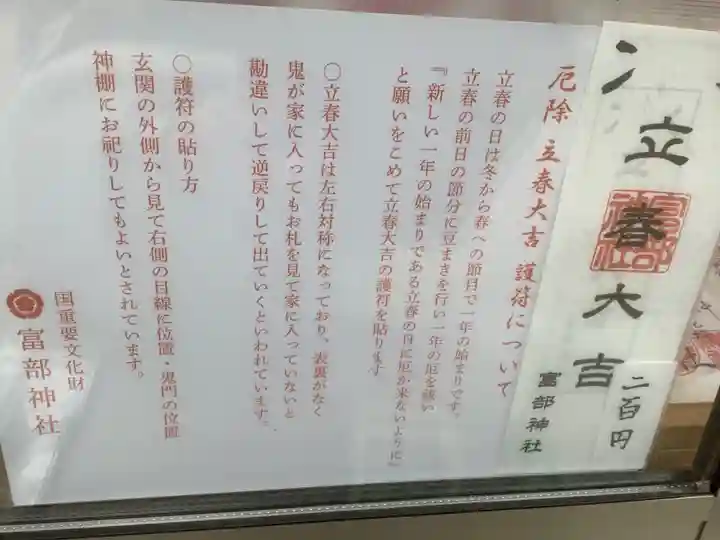 立春大吉
富部神社
二百円
厄除 立春大吉 護符について
立春の日は冬から春への節目で一年の始まりです。
立春の前日の節分に豆まきを行い一年の厄を祓い
『新しい一年の始まりである立春の日に厄が来ないように』
と願いをこめて立春大吉の護符を貼ります
〇立春大吉は左右対称になっており、表裏がなく
鬼が家に入ってもお札を見て家に入っていないと
勘違いして逆戻りして出ていくといわれています。
〇護符の貼り方
玄関の外側から見て右側の目線に位置・鬼門の位置
神棚にお祀りしてもよいとされています。
国重要文化財
富部神社